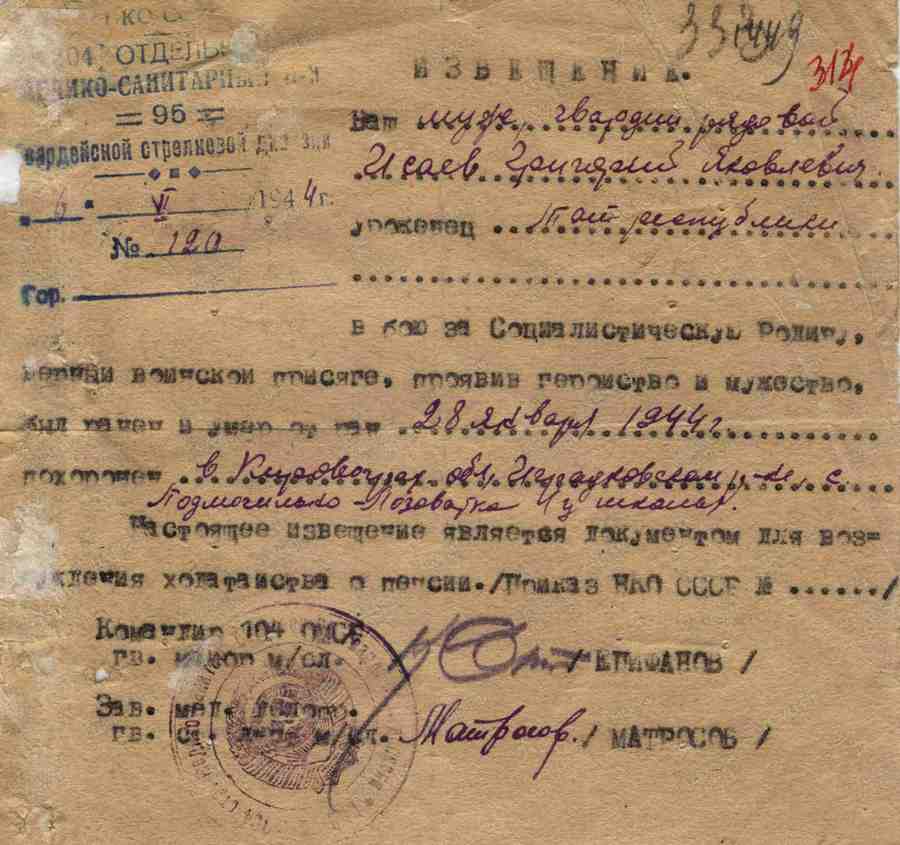 НКО С
104 ОТДЕЛЬ
МЕДИКО-САНИТАРНЫЙ Б-Н
= 95 =
Гвардейской стрелковой дивизии
6 VI 1944 г.
№ 120
Гор.
314
ИЗВЕЩЕНИЕ.
Ваш муж, гвардии рядовой
Исаев Григорий Яковлевич
уроженец Тат республики
в бою за Социалистическую Родину,
верный воинской присяге, проявив геройство и мужество,
был ранен и умер от ран 28 января 1944 г
похоронен в Кировоград. обл. р-не, с.
Подмогильно-Лозоватка у школы.
Настоящее извещение является документом для воз=
уждения ходатайства о пенсии./Приказ НКО СССР № ....../
Командир 104 ОМСБ
гв. майор м/сл. / ЕПИФАНОВ /
Зав. мед.
гв. ст. лейт м/сл. Матросов. / МАТРОСОВ /